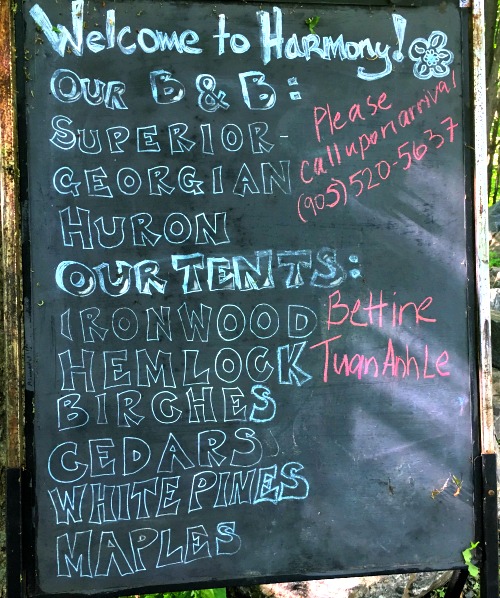 Welcome to Harmony!
OUR B & B:
Please
Call upon arrival
(905) 520-5637
SUPERIOR-
GEORGIAN
HURON
OUR TENTS:
IRONWOOD Bettine
HEMLOCK Tuan Anh Le
BIRCHES
CEDARS
WHITE PINES
MAPLES